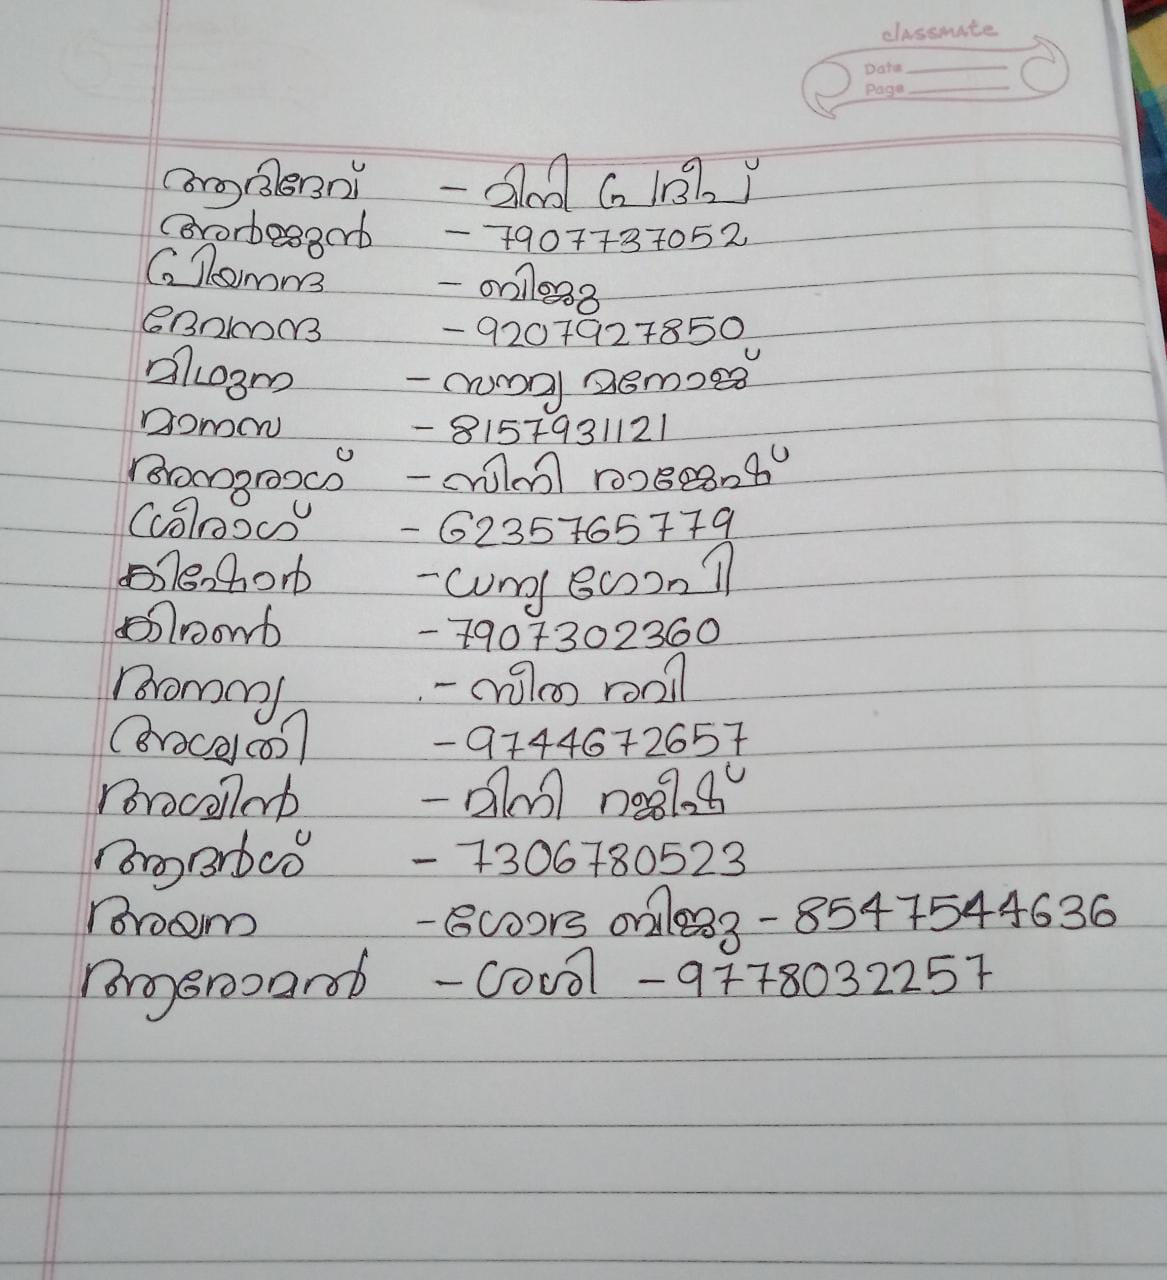 classmate
Date
Page
ആദിദേവ് - മിനി പ്രദീപ്
അർജ്ജുൻ - 7907737052
പ്രിയനന്ദ - ബിജു
ദേവനന്ദ - 9207927850
മിഥുന - സന്ധ്യ മനോജ്
മാനസ - 8157931121
അനുരാഗ് - സിനി രാജേഷ്
ശ്രീരാഗ് - 6235765779
കിഷോർ - ധന്യ ഗോപി
കിരൺ - 7907302360
അനന്യ - സിത രവി
അശ്വതി - 9744672657
അശ്വിൻ - മിനി രജീഷ്
ആദർശ് - 7306780523
അയന - ശോഭ ബിജു - 8547544636
ആരോമൽ - ശശി - 9778032257